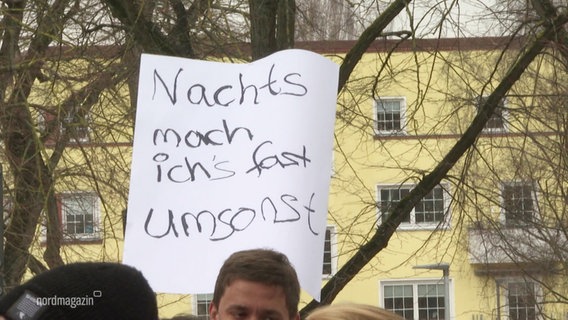 Nachts
mach
ich's fast
umsonst
nordmagazin